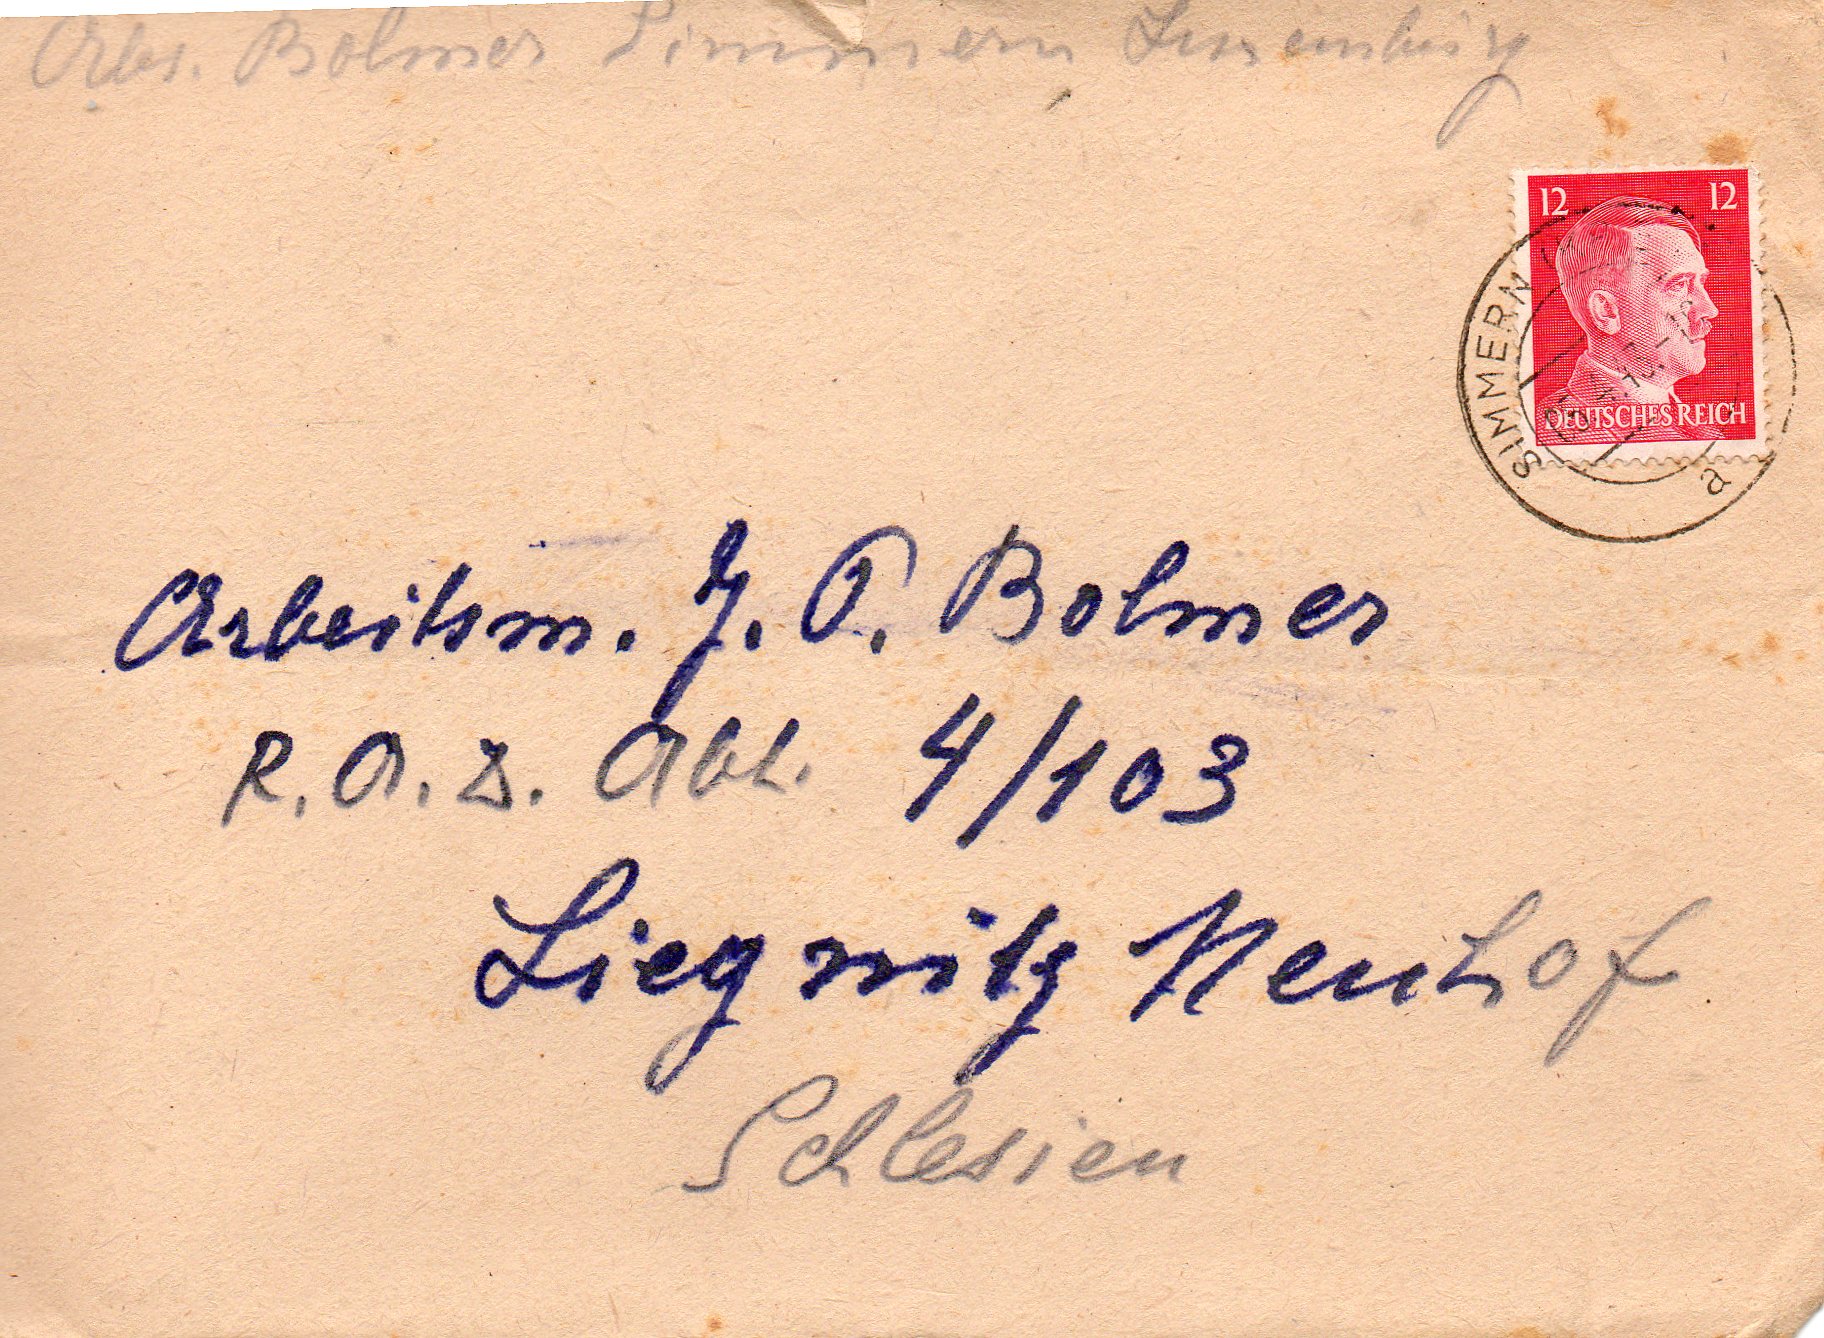 Abs. Bolmer Simmern Luxemburg
12 12
DEUTSCHES REICH
SIMMERN
a
Arbeitsm. J. P. Bolmer
R. A. D. Abt. 4/103
Liegnitz Neuhof
Schlesien